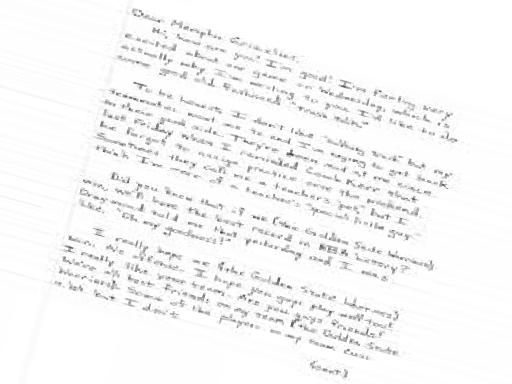 Dear Memphis Grizzlies,
Hi, how are you? I'm good! I'm feeling very
excited about our game on Wednesday, which is
actually why I'm writing to you. I'd like to do
some good old fashioned "trash talk".
To be honest, I don't like "talking trash" but my
teammates want me to and I'm trying to get back
on their good side. They're been mad at me since
last Friday when I reminded Coach Kerr that
he forgot to assign practice over the weekend.
Sometimes they call me a teacher's pet, but I
think I'm more of a teacher's "special little guy."
Did you know that if we (the Golden State Warriors)
win, we'll have the best record in NBA history?
Draymond told me that yesterday and I was
like, "Oh my goodness!"
I really hope we (the Golden State Warriors)
win. No offense. I hope you guys play well too!
I really like your team. Are you guys friends?
We're all best friends on my team (the Golden State
Warriors). Some of the players on my team cuss
a lot but I don't.
(cont)